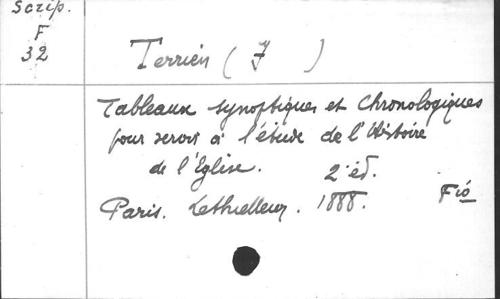 Scrip.
F
32
Terrien (J )
Tableaux synoptiques et chronologiques
pour servir à l'étude de l'Histoire
de l'Eglise. 2e éd.
Paris. Lethielleux. 1888. Fió